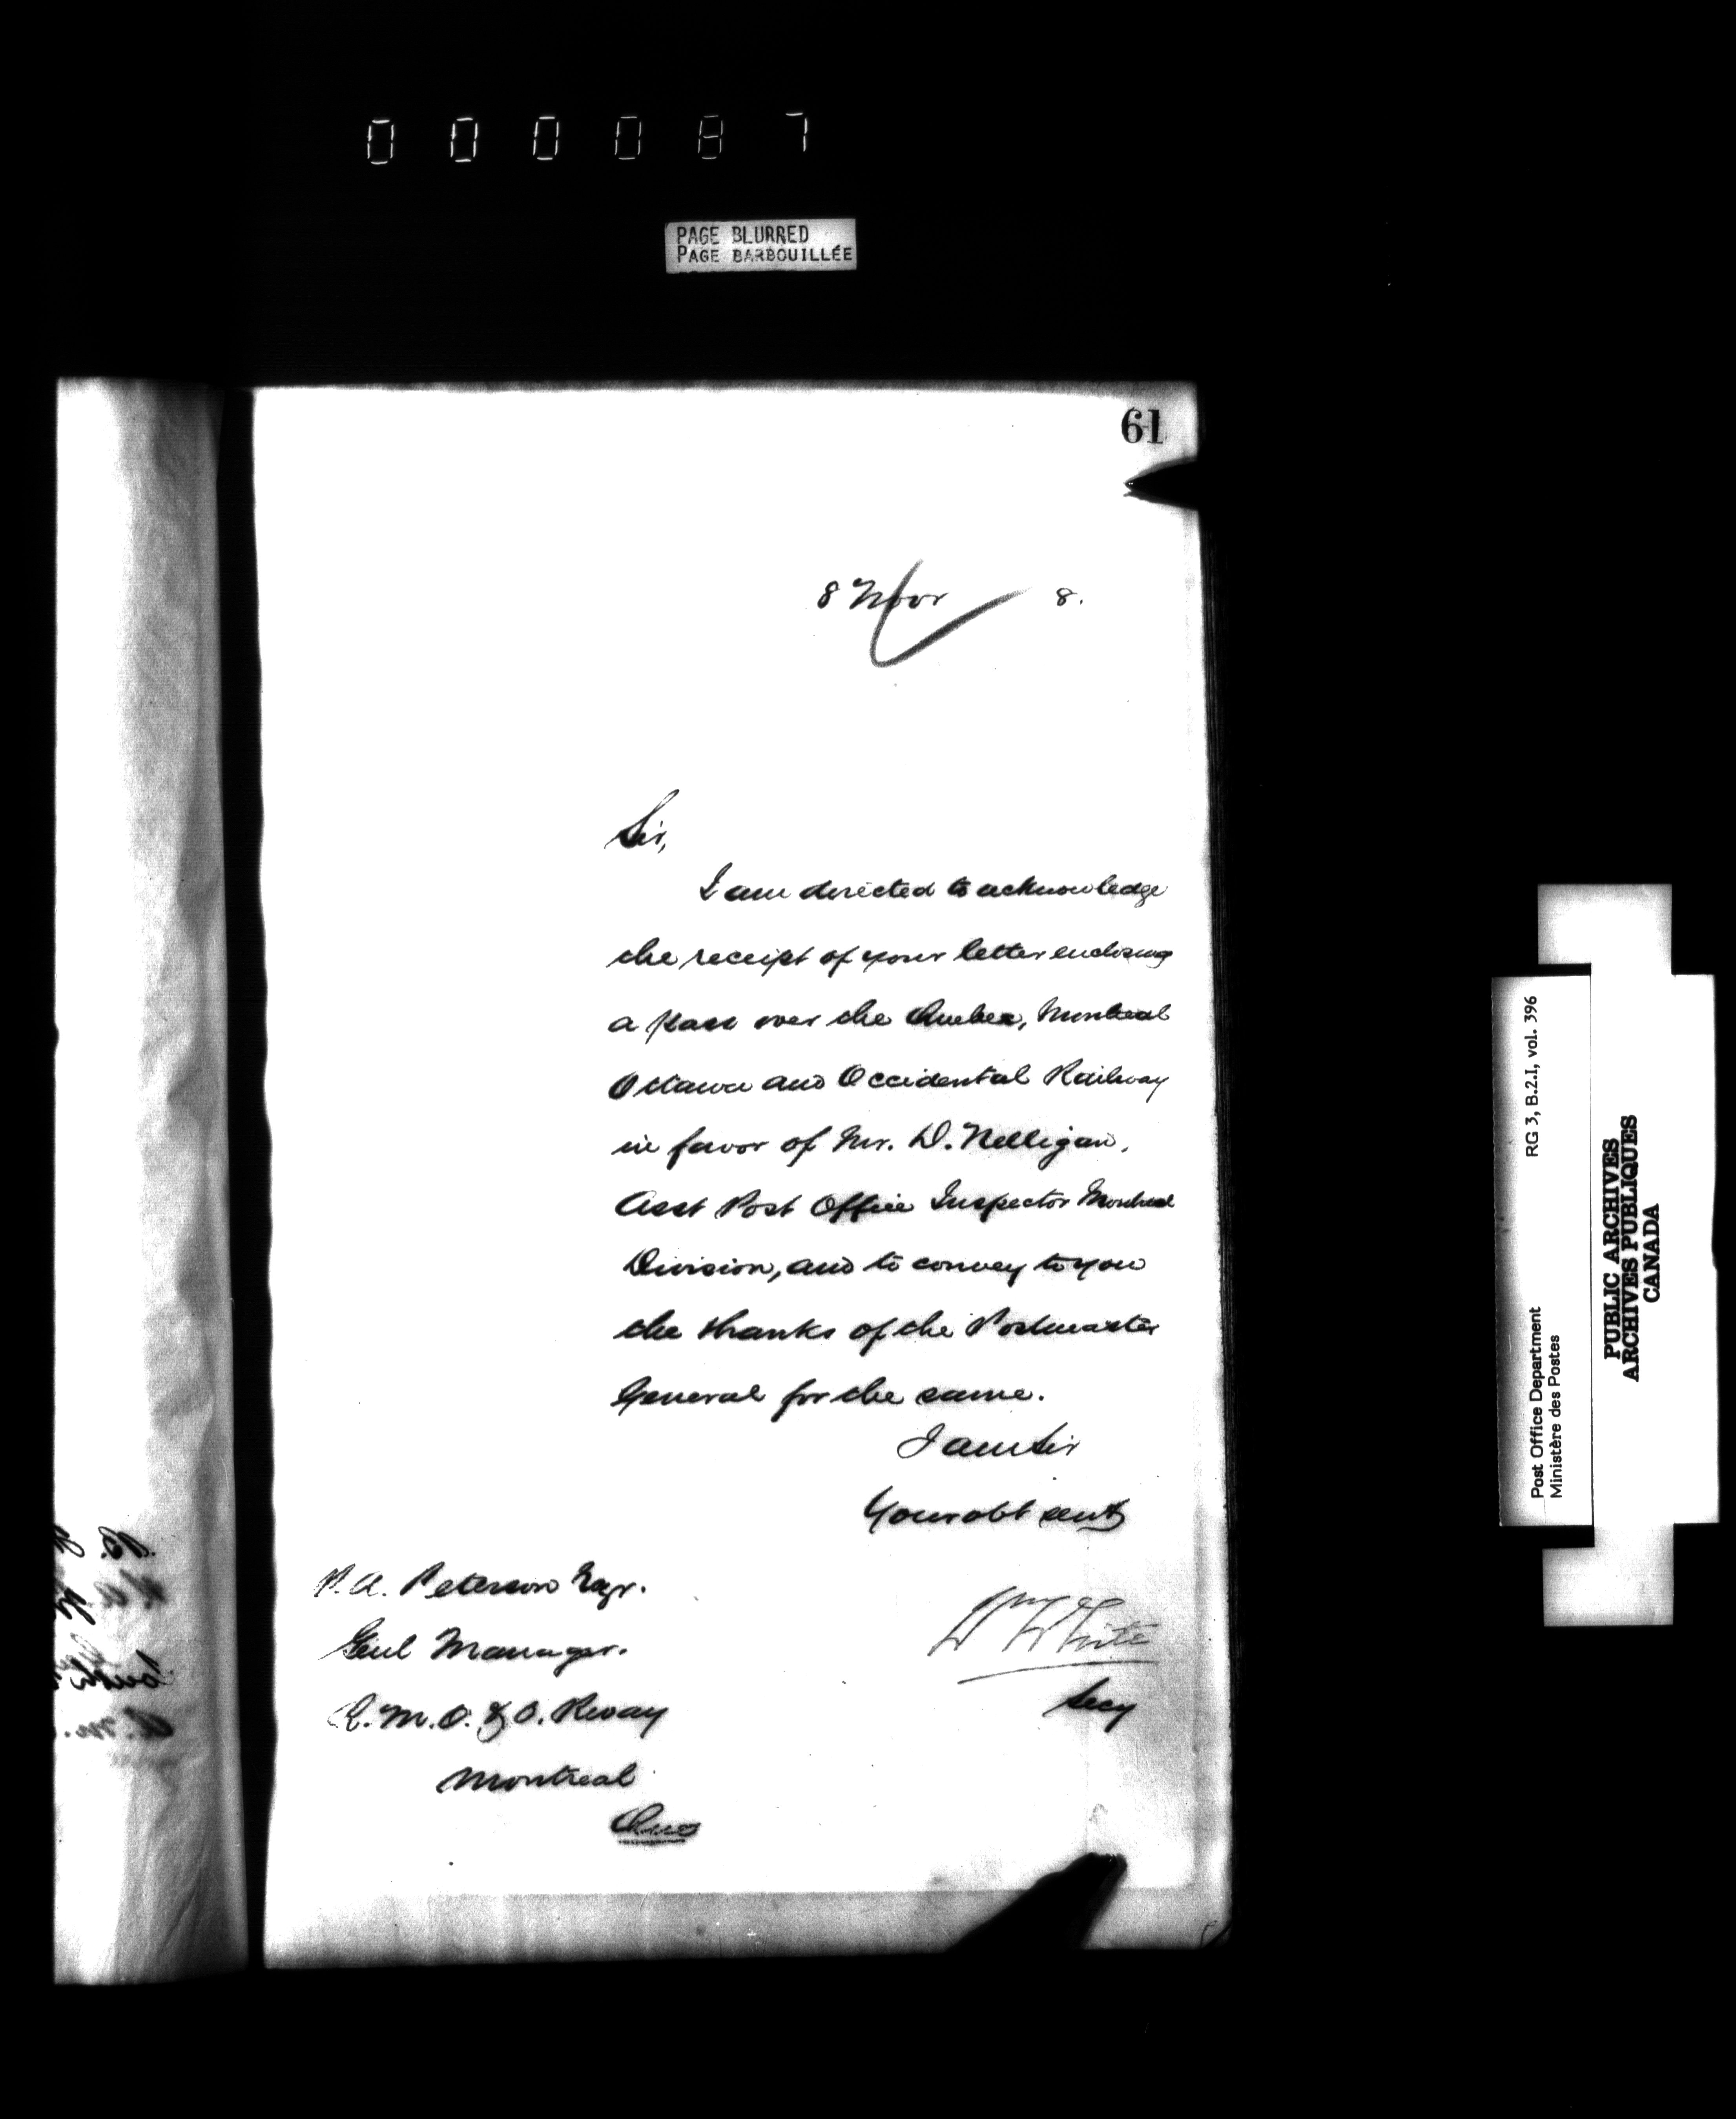 000087
PAGE BLURRED
PAGE BARBOUILLÉE
61
8 Novr 8.
Sir,
I am directed to acknowledge
the receipt of your letter enclosing
a pass over the Quebec, Montreal
Ottawa and Occidental Railway
in favor of Mr. D. Nelligan,
Asst Post Office Inspector Montreal
Division, and to convey to you
the thanks of the Postmaster
General for the same.
I am Sir
Your obt servt
Wm White
Secy
P. A. Peterson Esqr.
Genl Manager.
Q. M. O. & O. Rway
Montreal
Que
RG 3, B.2.1, vol. 396
Post Office Department
Ministère des Postes
PUBLIC ARCHIVES
ARCHIVES PUBLIQUES
CANADA